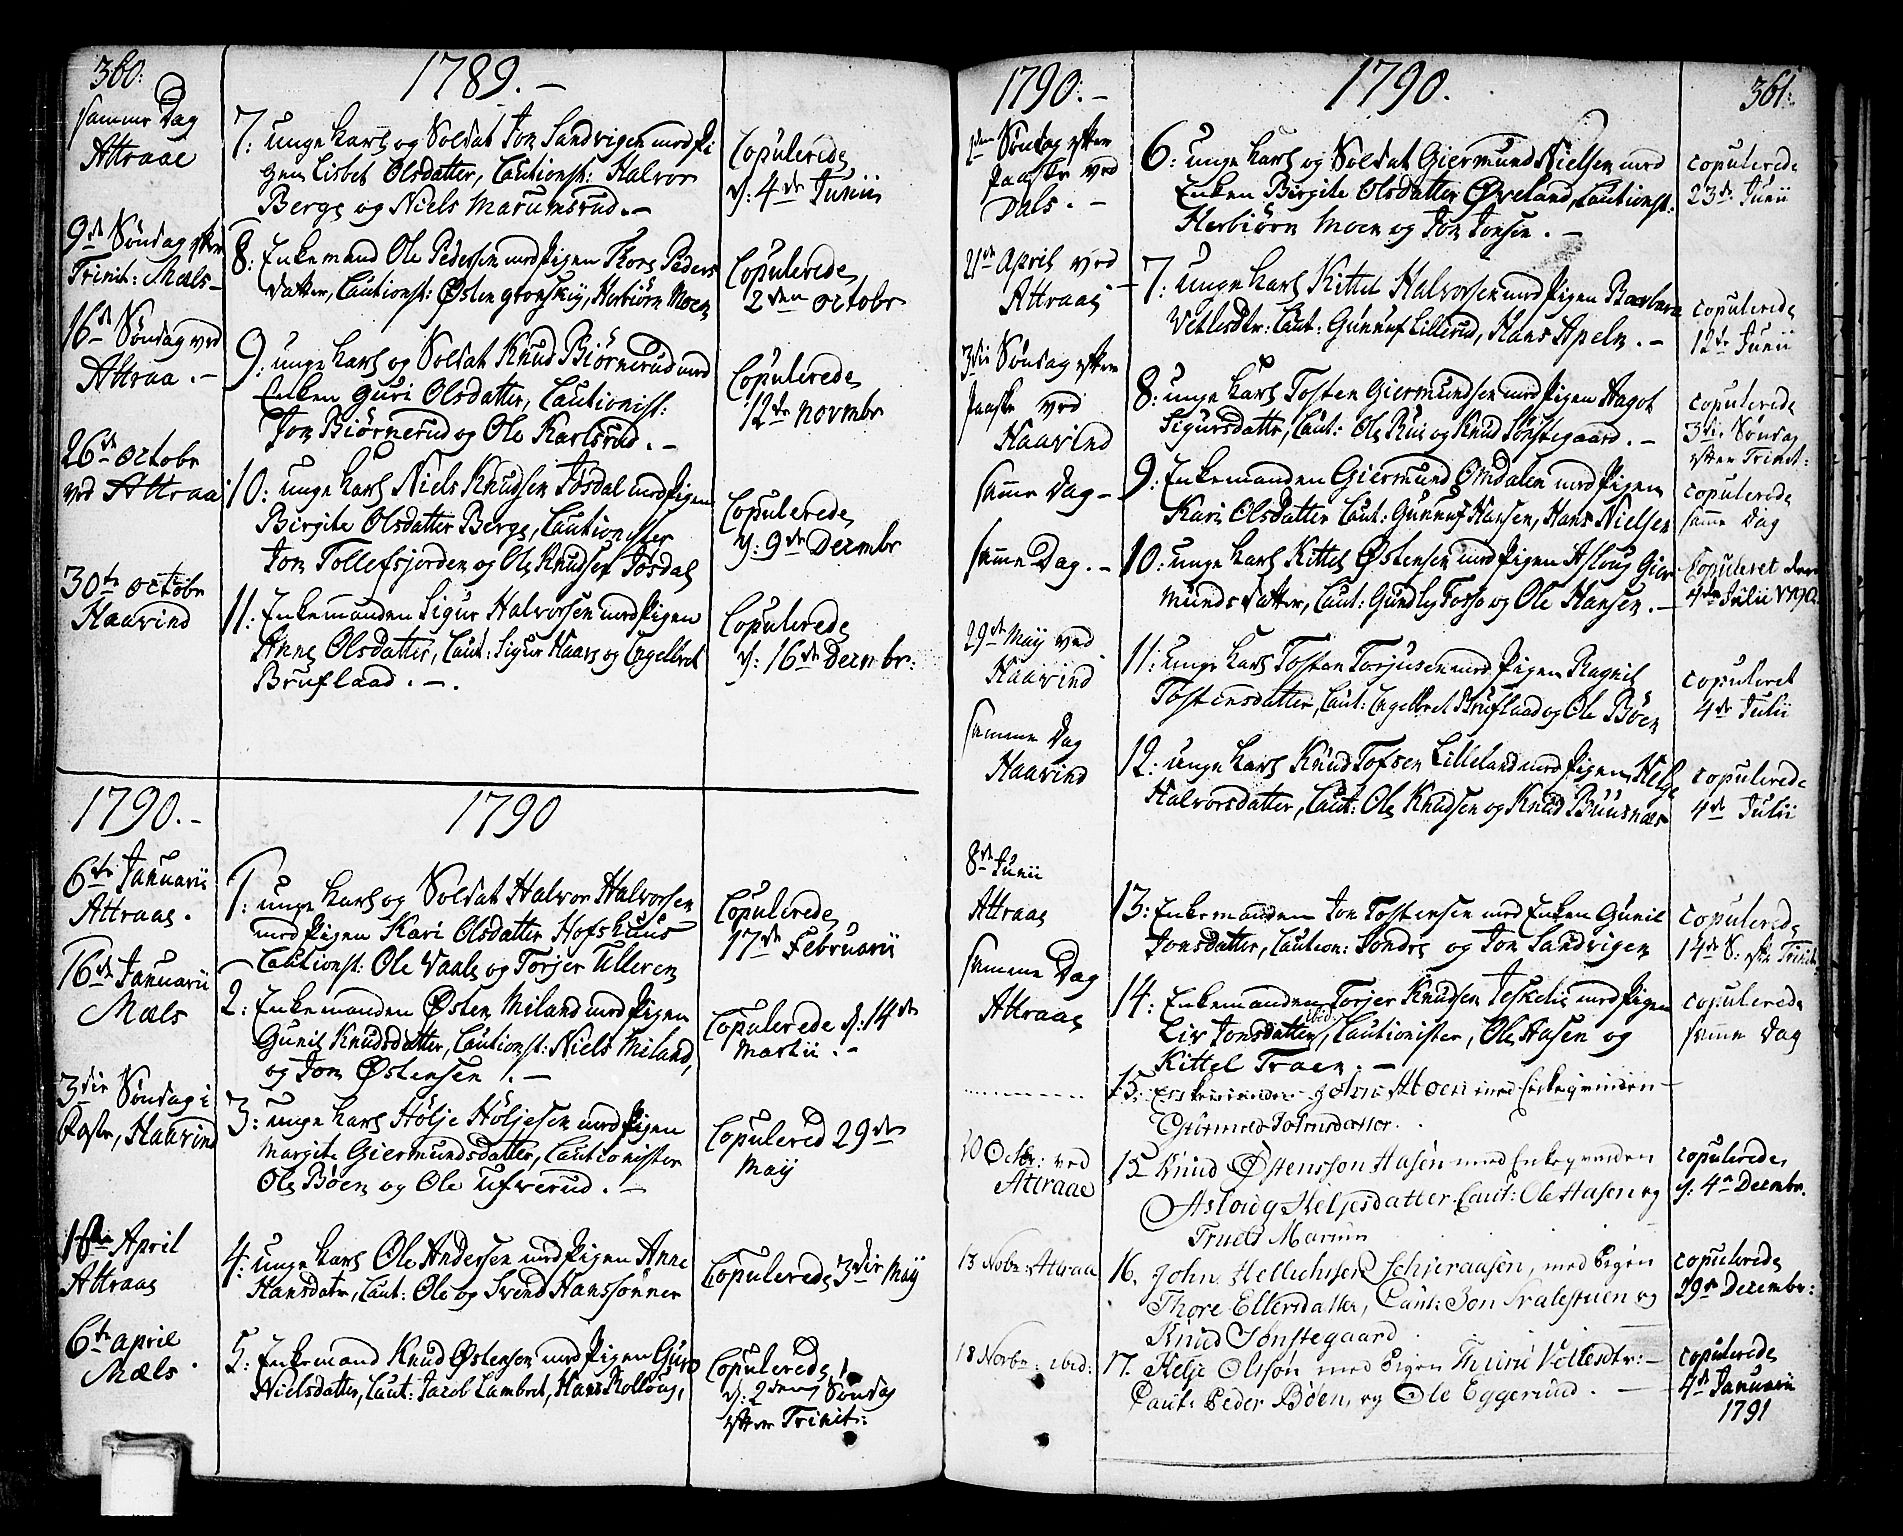 360:
1789. –
samme Dag
Attraae
7: unge Karl og Soldat Jon Sandvigen med Pi
gen Lisbet Olsdatter, Cautionst: Halvor
Berge og Niels Marumsrud. –
Copulerede
d: 4de Junii
9de Søndag efter
Trinit: Mæls –
8: Enkemand Ole Pedersen med Pigen Thore Peders
datter, Cautionst: Østen Gronskiy, Herbiørn Moen
Copulerede
2den Octobr
16de Søndag ved
Attraa. –
9: unge Karl og Soldat Knud Biørnerud med
Enken Guri Olsdatter, Cautionist:
Jon Biørnerud og Ole Karlsrud. –
Copulerede
12te Novmbr
26de Octobr
ved Attraa
10: unge Karl Niels Knudsen Josdal med Pigen
Birgite Olsdatter Berge, Cautionister
Jon Tollefsjorden og Ole Knudsen Josdal
Copulerede
d: 9de Decmbr
30te Octobr
Haavind
11: Enkemanden Sigur Halvorsen med Pigen
Anne Olsdatter, Caut: Sigur Haars og Engelbret
Bruflaad. –.
Copulerede
d: 16de Decmbr:
1790. –
1790
6te Januarii
Attraae.
1: unge Karl og Soldat Halvor Halvorsen
med Pigen Kari Olsdatter Hofshuus
Cautionst: Ole Vaale og Torjer Ulleren
Copulerede
17de Februarii
16de Januarii
Mæls
2: Enkemanden Østen Miland med Pigen
Gunil Knudsdatter, Cautionst: Niels Miland,
og Jon Østensen. –
Copulerede d: 14de
Martii. –
3die Søndag i
Faste, Haavind
3: unge Karl Hölje Höljesen med Pigen
Margite Giermundsdatter, Cautionister
Ole Böen og Ole Ufverud. –
Copulered 29de
May
April
Attraae
4: unge Karl Ole Andersen med Pigen Anne
Hansdatr, Caut: Ole og Svend Hanssønner
Copulerede 3die May
6te April
Mæls.
5: Enkemand Knud Østensen med Pigen Guro
Nielsdatter, Caut: Jacob Lambret, Hans Rolloug,
Copulerede
d: 2den Søndag
efter Trinit:
1790. –
1790.
361:
2den Søndag efter
Paaske ved
Dals. –
6: unge Karl og Soldat Giermund Nielsen med
Enken Birgite Olsdatter Øveland, Cautionst:
Herbiørn Moen og Jon Jonsen. –
copulerede
23de Junii
21de April ved
Attraae
7: unge Karl Kittel Halvorsen med Pigen Barbara
Vetlesdtr: Caut: Gunnuf Lillerud, Hans Apeln. –
copulerede
12te Junii
3die Søndag efter
Paaske ved
Haavind
8: unge Karl Tosten Giermundsen med Pigen Aagot
Sigursdattr, Caut: Ole Rue og Knud Sønstegaard. –
copulerede
3die Søndag
efter Trinit:
samme Dag –
9: Enkemanden Giermund Omdalen med Pigen
Kari Olsdatter Caut: Gunnuf Hansen, Hans Nielsen
copulerede
samme Dag
samme Dag. –
10: unge Karl Kittel Østensen med Pigen Aslaug Gier
munds datter, Caut: Gundly Fosso og Ole Hansen. –
Copuleret den
4de Julii 1790.
29de May ved
Haavind
11: unge Karl Tosten Torjusen med Pigen Ragnil
Tostensdatter, Caut: Engelbret Bruflaad og Ole Böen
copuleret
4de Julii
samme Dag
Haavind
12: unge Karl Knud Tofsen Lilleland med Pigen Helge
Halvorsdatter, Caut: Ole Knudsen og Knud Buusnæs
copulerede
4de Julii
8de Junii
Attraae
13: Enkemanden Jon Tostensen med Enken Gunil
Jonsdatter, Caution: Sondre og Jon Sandvigen
copulerede
14de S: eftr Trinit:
samme Dag
Attraae
14: Enkemanden Torjer Knudsen Jeskelie med Pigen
Liv Jonsdatter ibid:, Cautionister, Ole Hasen og
Kittel Traen. –
copulerede
samme Dag
15: Enkemanden John Moen med Enkeqvinden –
Johnsdatter.
10 Octbr: ved
Attraae
15 Knud Østensson Hasen med Enkeqvinden
Aslaug Heljesdatter Caut: Ole Hasen og
Truels Marum
copulerede
d: 4de Decmbr.
13 Novbr: Attraa
16. John Schieraasen, med Pigen
Thore Ellefsdatter, Caut: Jon Tralestuen og
Knud Sønstegaard.
copulerede
29de Decembr:
18 Novbr: ibid:
17. Helje Olssøn med Pigen Thurii Vetlesdtr: –
Caut: Peder Böen, og Ole Eggerud. –
copulerede
4de Januarii
1791